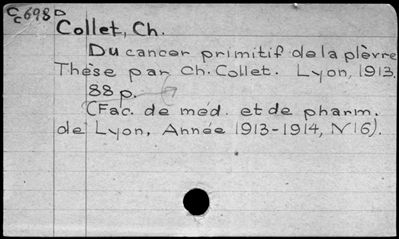 Cc698D
Collet, Ch.
Du cancer primitif de la plèvre
Thèse par Ch. Collet. Lyon, 1913.
88 p.
(Fac. de méd. et de pharm.
de Lyon, Année 1913-1914, N°16).